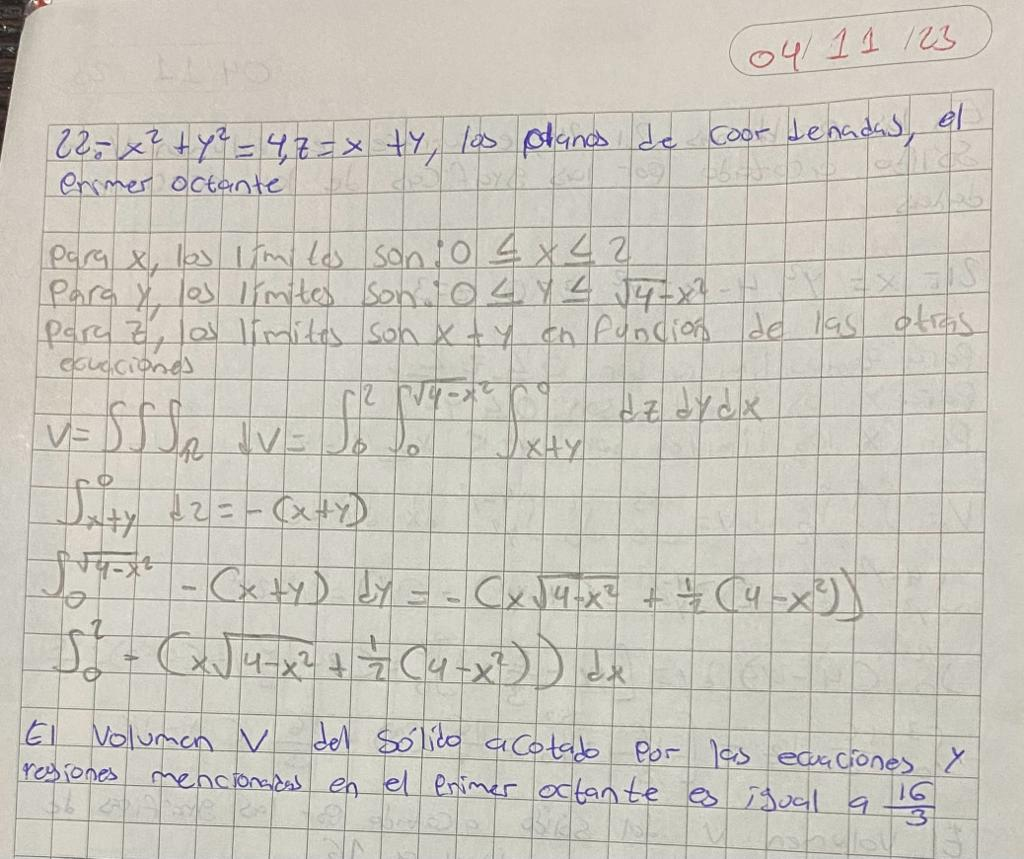 04/11/23
22.- x² + y² = 4, z = x + y, los planos de coordenadas, el
primer octante
para x, los límites son: 0 ≤ x ≤ 2
para y, los límites son: 0 ≤ y ≤ √4-x²
para z, los límites son x + y en función de las otras
ecuaciones
V = ∫∫∫_R dV = ∫_0^2 ∫_0^√4-x² ∫_x+y^0 dz dy dx
∫_x+y^0 dz = -(x+y)
∫_0^√4-x² -(x+y) dy = -(x√4-x² + 1/2 (4-x²))
∫_0^2 -(x√4-x² + 1/2 (4-x²)) dx
El volumen V del sólido acotado por las ecuaciones y
regiones mencionadas en el primer octante es igual a 16/3